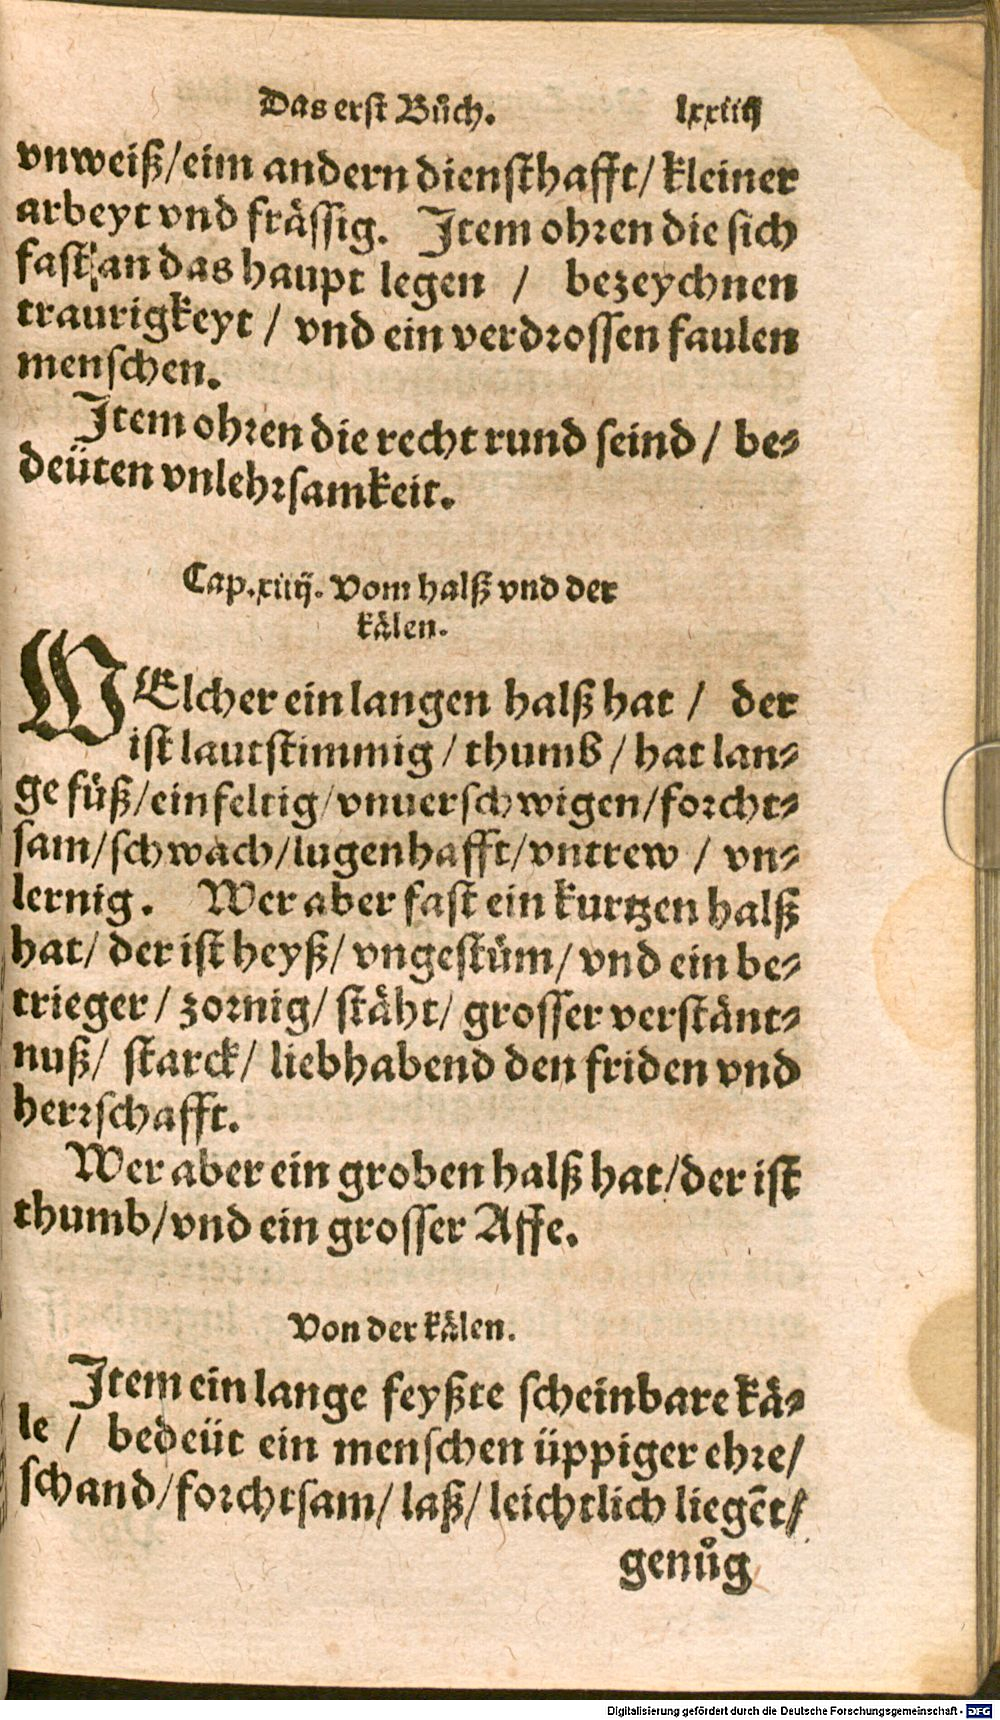 Das erst Bůch. lxxiiij
vnweiß/eim andern diensthafft/ kleiner
arbeyt vnd frässig. Item ohren die sich
fast an das haupt legen / bezeychnen
traurigkeyt / vnd ein verdrossen faulen
menschen.
Item ohren die recht rund seind / be-
deüten vnlehrsamkeit.
Cap. xiiij. Vom halß vnd der
kälen.
WElcher ein langen halß hat / der
ist lautstimmig / thumb / hat lan-
ge füß/einfeltig/vnuerschwigen/forcht-
sam/schwach/lugenhafft/vntrew / vn-
lernig. Wer aber fast ein kurtzen halß
hat/ der ist heyß/ vngestüm/ vnd ein be-
trieger/ zornig/ stäht/ grosser verständt-
nuß/ starck/ liebhabend den friden vnd
herrschafft.
Wer aber ein groben halß hat/der ist
thumb/vnd ein grosser Affe.
Von der kälen.
Item ein lange feyßte scheinbare kä-
le / bedeüt ein menschen üppiger ehre/
schand/forchtsam/ laß/ leichtlich liegẽt/
genůg
Digitalisierung gefördert durch die Deutsche Forschungsgemeinschaft - DFG